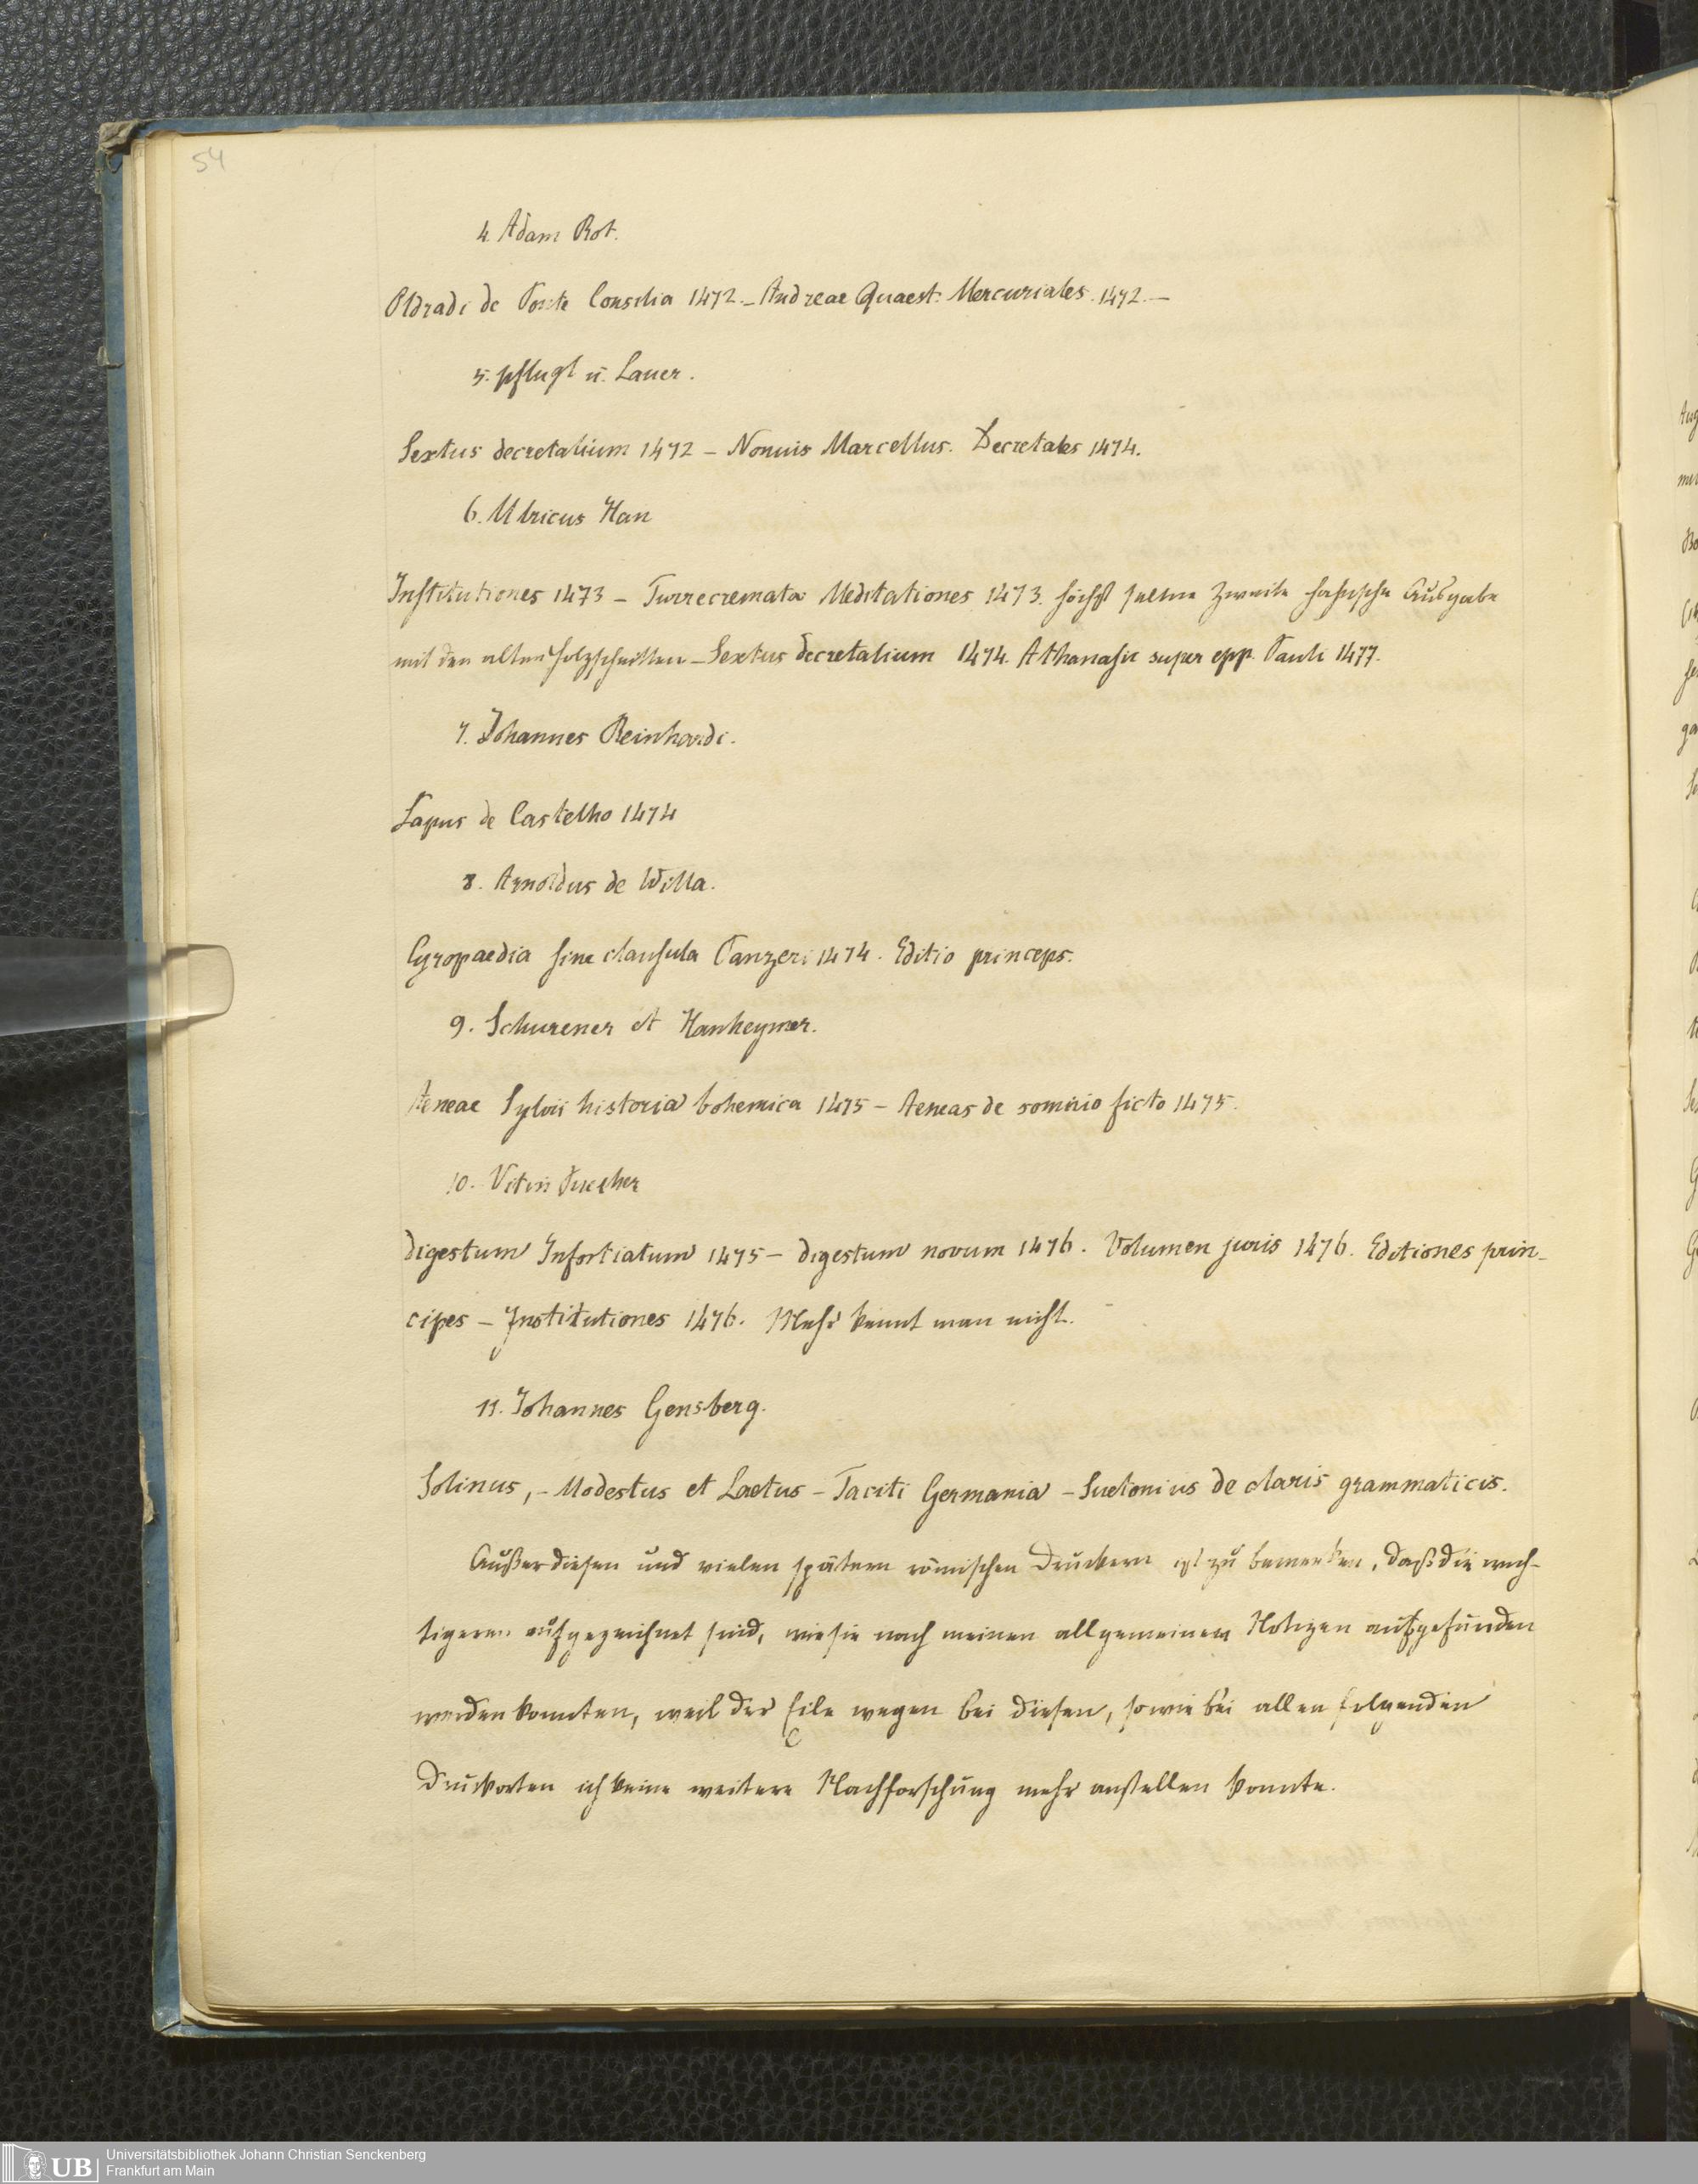 54
4. Adam Rot.
Oldradi de Ponte Consilia 1472. – Andreae Quaest. Mercuriales. 1472. –
5. Pflugl u. Lauer.
Sextus decretalium 1472 – Nonuis Marcellus. Decretales 1474.
6. Ulricus Han
Institutiones 1473 – Turrecremata Meditationes 1473. höchst seltene zweite hahnsche Ausgabe
mit den alten Holzschnitten – Sextus decretalium 1474. Athanasii super epp. Pauli 1477.
7. Johannes Reinhardi.
Lapus de Castelho 1474
8. Arnoldus de Willa.
Cyropaedia sine clausula Panzeri 1474. Editio princeps.
9. Schurener et Hanheymer.
Aeneae Sylvii historia bohemica 1475 – Aeneas de somnio ficto 1475.
10. Vitus Puecher
Digestum Infortiatum 1475 – digestum novum 1476. Volumen juris 1476. Editiones prin-
cipes – Institutiones 1476. Mehr kennt man nicht.
11. Johannes Gensberg.
Solinus, – Modestus et Laetus – Taciti Germania – Suetonius de claris grammaticis.
Außer diesen und vielen spätern römischen Druckern ist zu bemerken, daß die wich-
tigeren aufgezeichnet sind, wie sie nach meinen allgemeinen Notizen aufgefunden
werden konnten, weil der Eile wegen bei diesen, sowie bei allen folgenden
Druckorten ich keine weitere Nachforschung mehr anstellen konnte.
UB
Universitätsbibliothek Johann Christian Senckenberg
Frankfurt am Main